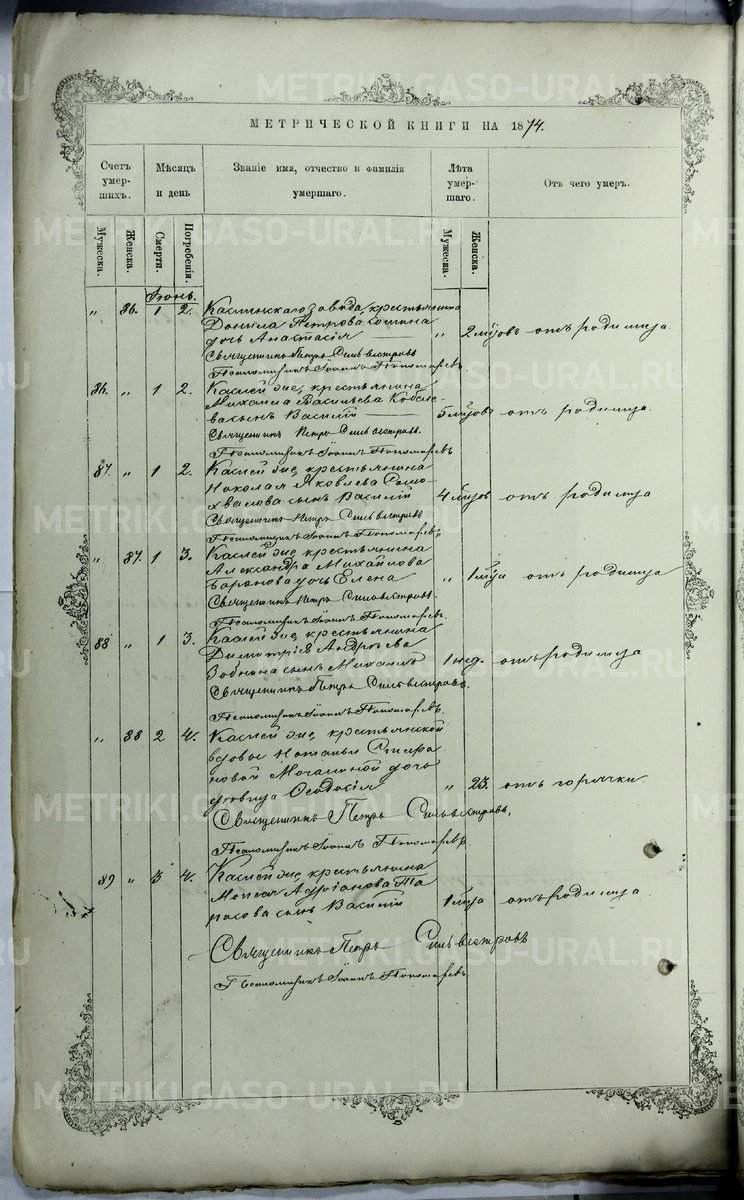 МЕТРИЧЕСКОЙ КНИГИ НА 1874.
Счетъ умерших.
Мѣсяцъ и день
Званіе имя, отчество и фамилія умершаго.
Лѣта умершаго.
Отъ чего умеръ.
Мужеска.
Женска.
Смерти.
Погребенія.
Мужеска.
Женска.
Іюнь.
„ 86. 1 2. Каслинскаго завода крестьянина
Данила Петрова
дочь Анастасія „ 2 мѣсяцовъ отъ родимца.
Священникъ Петръ Сильвестровъ
Псаломщикъ Іоаннъ Пономаревъ.
86. „ 1 2. Каслей же, крестьянина
Михаила Васильева
сынъ Василій 5 мѣсяцовъ отъ родимца.
Священникъ Петръ Сильвестровъ.
Псаломщикъ Іоаннъ Пономаревъ
87. „ 1 2. Каслей же, крестьянина
Николая Яковлева Само
хвалова сынъ Василій 4 мѣсяцовъ отъ родимца
Священникъ Петръ Сильвестровъ
Псаломщикъ Іоаннъ Пономаревъ,
„ 87. 1 3. Каслей же, крестьянина
Александра Михайлова
Баранова дочь Елена „ 1 мѣсяца отъ родимца
Священникъ Петръ Сильвестровъ.
Псаломщикъ Іоаннъ Пономаревъ.
88 „ 1 3. Каслей же, крестьянина
Димитрія Андреева
Зобнина сынъ Михаилъ 1 нед. отъ родимца
Священникъ Петръ Сильвестровъ.
Псаломщикъ Іоаннъ Пономаревъ.
„ 88 2 4. Каслей же, крестьянской
вдовы Натальи Спири
новой Мочалиной дочь
дѣвица Ѳеодосія „ 23. отъ горячки.
Священникъ Петръ Сильвестровъ,
Псаломщикъ Іоаннъ Пономаревъ
89 „ 3 4. Каслей же, крестьянина
Моисея Адріанова Та
расова сынъ Василій 1 мѣсяца отъ родимца.
Священникъ Петръ Сильвестровъ
Псаломщикъ Іоаннъ Пономаревъ
METRIKI.GASO-URAL.RU